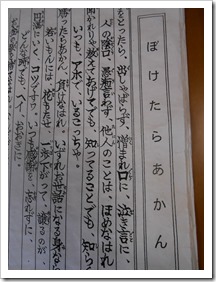 ぼけたらあかん
もとったら、出しゃばらず、憎まれ口に、泣き言に、
人の陰口、愚痴言わず、他人のことは、ほめなはれ
聞かれりゃ教えてあげても、知ってることでも、知らん
いつも、アホで、いるこっちゃ。
勝ったらあかん、負けなはれ、いずれお世話になる身なら
若いもんには、花もたせ、一歩下がって、譲るのが、
円満にいく、コツですワ。いつも感謝を、忘れずに、
どんな時でも、ヘイ、おおきに。